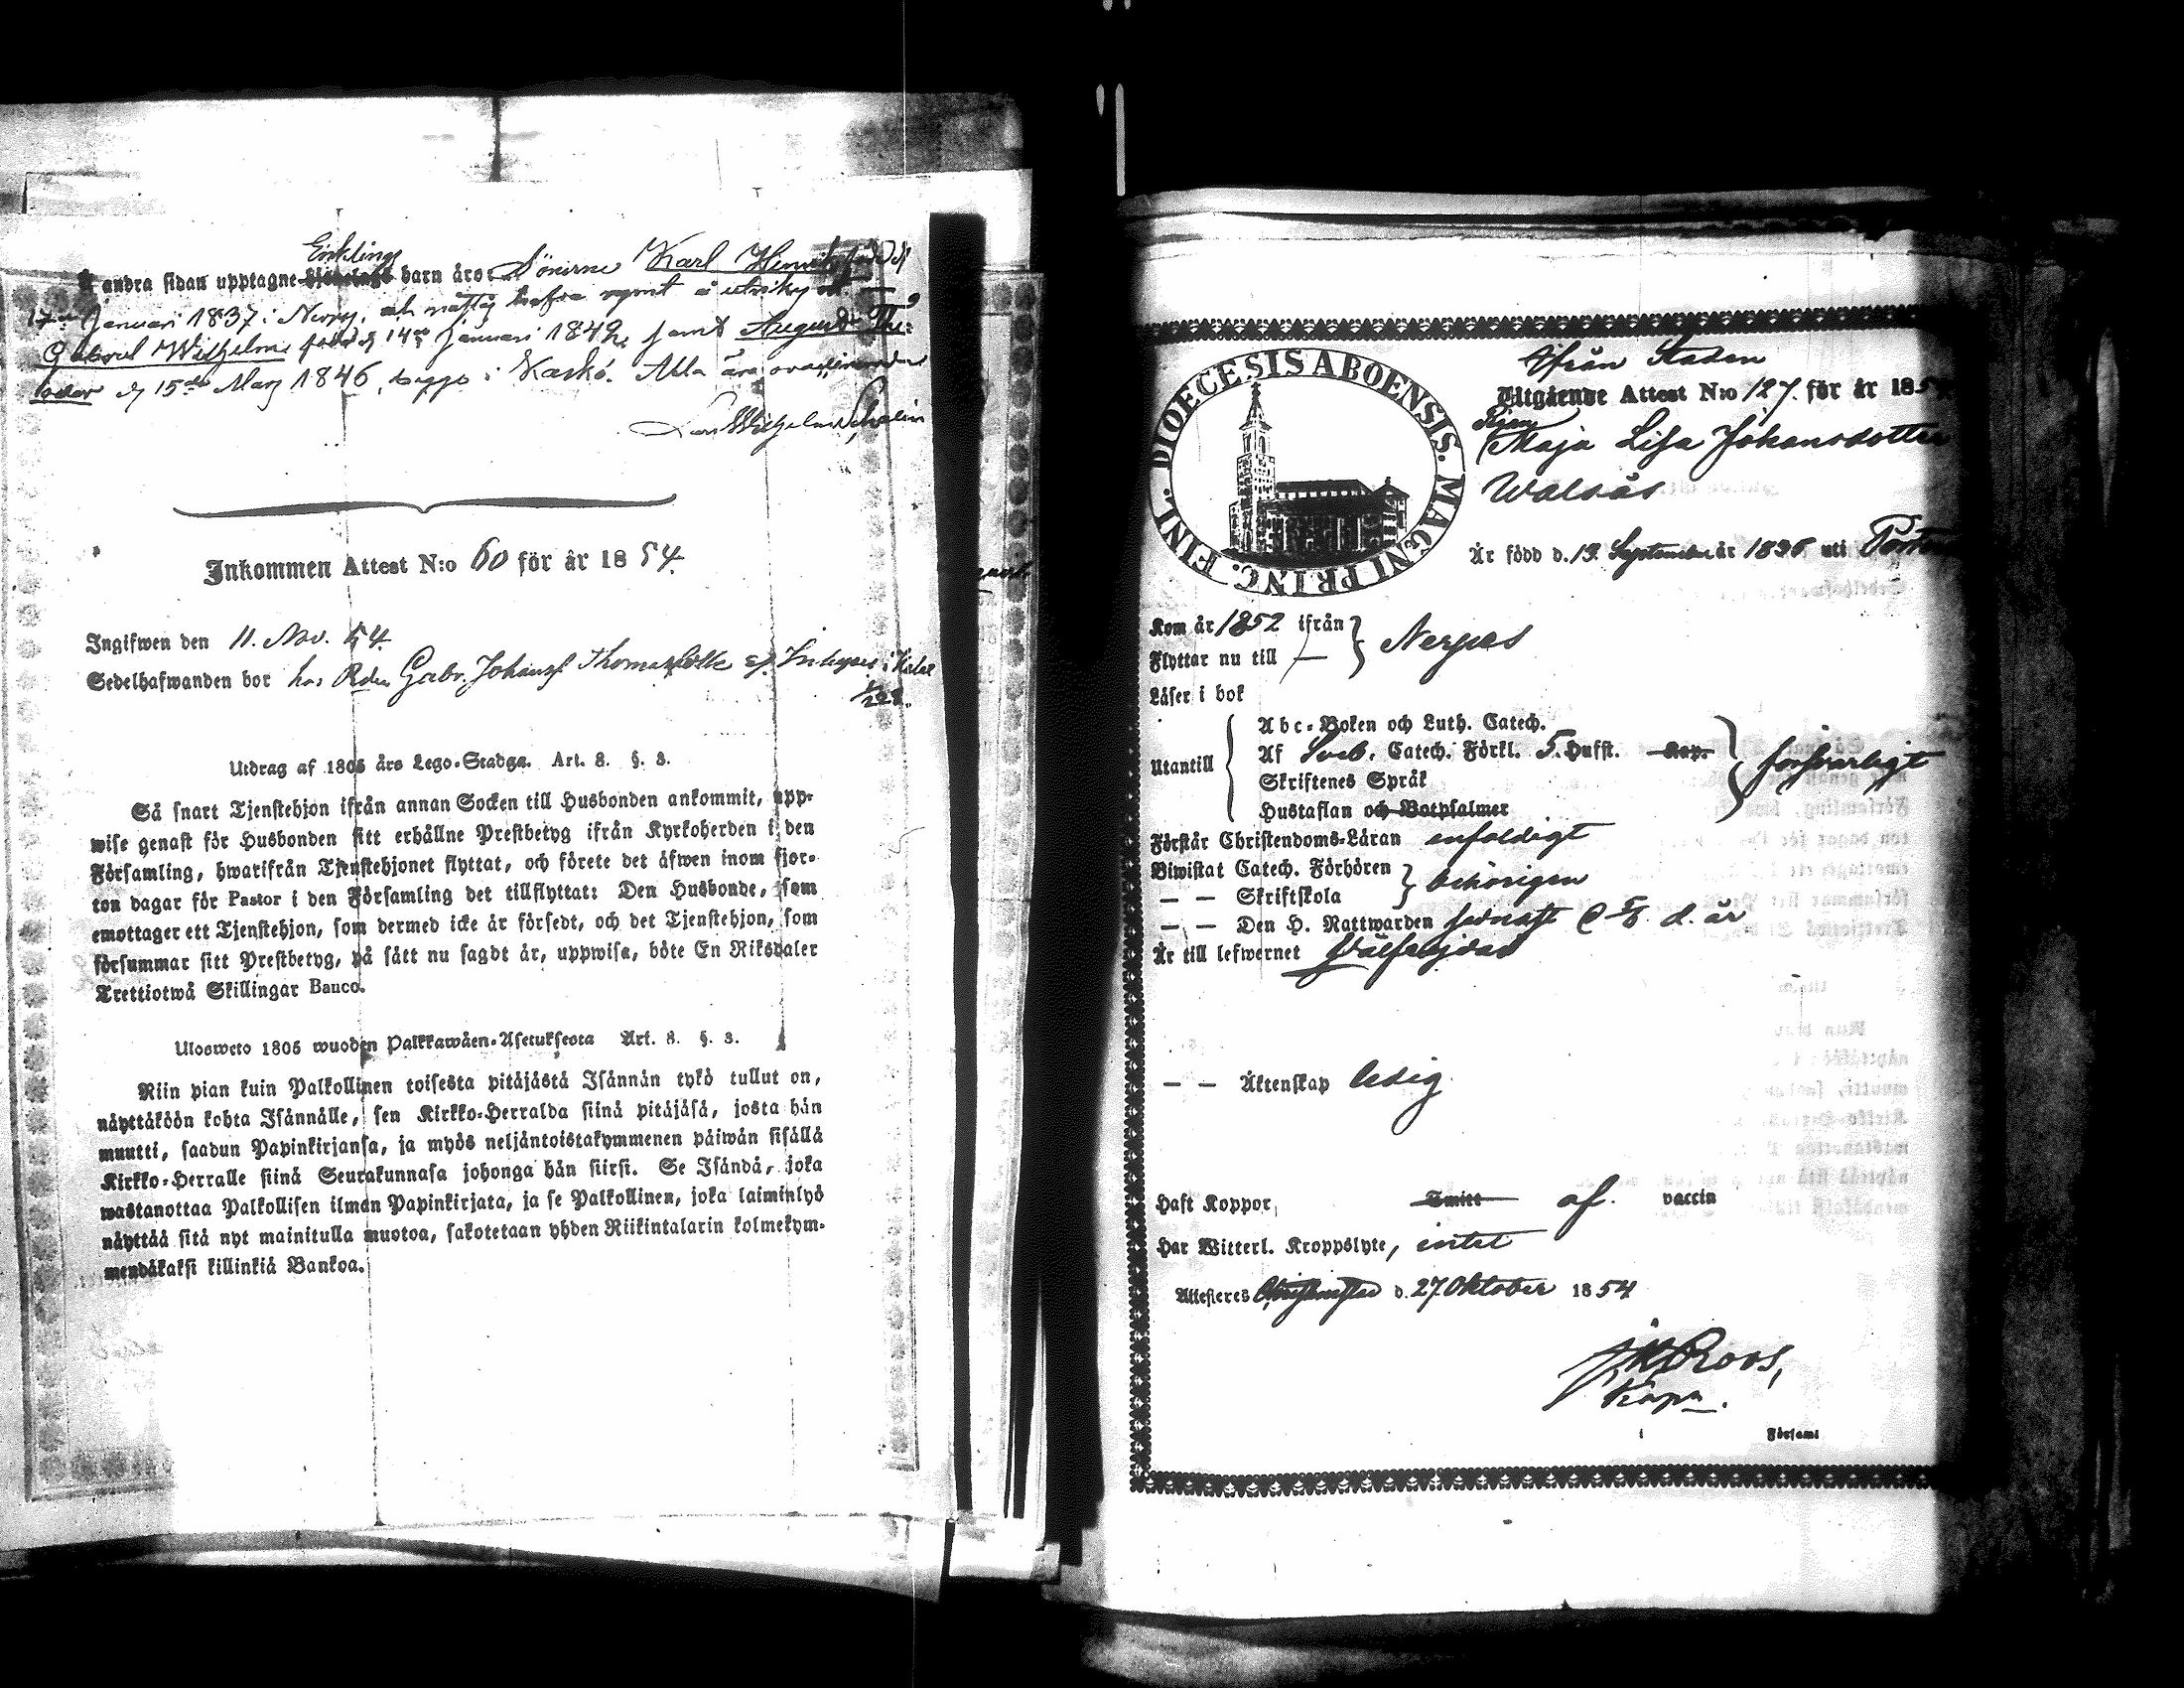 Enklings
Å andra sidan upptagne barn äro: Sönerne Karl Henrik född d
17de Januari 1837 i Nerpes, och måste hafva rymt å utrikes ort
Gabriel Wilhelm född d 14de Januari 1842, samt August The=
odor d 15de Mars 1846, begge i Kaskö. Alla äro ovaccinerade
Wilhelm Schalin
Inkommen Attest N:o 60 för år 1854.
Ingifwen den 11. Nov. 54.
Sedelhafwanden bor hos Gabr. Johans Thomasfolk
Utdrag af 1805 års Lego-Stadga. Art. 8. §. 3.
Så snart Tjenstehjon ifrån annan Socken till Husbonden ankommit, upp-
wise genast för Husbonden sitt erhållne Prestbetyg ifrån Kyrkoherden i den
Församling, hwarifrån Tjenstehjonet flyttat, och förete det äfwen inom fjor-
ton dagar för Pastor i den Församling det tillflyttat: Den Husbonde, som
emottager ett Tjenstehjon, som dermed icke är försedt, och det Tjenstehjon, som
försummar sitt Prestbetyg, på sätt nu sagdt är, uppwisa, böte En Riksdaler
Trettiotwå Skillingar Banco.
Ulosweto 1805 wuoden Palkkawäen-Asetuksesta Art. 8. §. 3.
Niin pian kuin Palkollinen toisesta pitäjästä Isännän tykö tullut on,
näyttäköön kohta Isännälle, sen Kirkko-Herralda siinä pitäjäsä, josta hän
muutti, saadun Papinkirjansa, ja myös neljäntoistakymmenen päiwän sisällä
Kirkko-Herralle siinä Seurakunnasa johonga hän siirsi. Se Isändä, joka
wastanottaa Palkollisen ilman Papinkirjata, ja se Palkollinen, joka laiminlyö
näyttää sitä nyt mainitulla muotoa, sakotetaan yhden Riikintalarin kolmekym-
mendäkaksi killinkiä Bankoa.
DIOECESIS ABOENSIS. MAGNI PRINC. FINL.
Ifrån Staden
Utgående Attest N:o 127. för år 1854
Pigan
Maja Lisa Johansdotter
Walsås
Är född d. 13. September år 1836 uti
Kom år 1852 ifrån
Flyttar nu till — } Nerpes
Läser i bok
Abc-Boken och Luth. Catech.
Utantill { Af Sveb. Catech. Förkl. 5. Hufst. Kap. } försvarligt
Skriftenes Språk
Hustaflan och Botpsalmer
Förstår Christendoms-Läran enfaldigt
Biwistat Catech. Förhören
— — Skriftskola } behörigen
— — Den H. Nattwarden sednast d. år
Är till lefwernet Välfrejdad
— — Äktenskap ledig
Haft Koppor, Smitt af. vaccin
Har Witterl. Kroppslyte, intet
Attesteres Christinestad d. 27 Oktober 1854
Roos,
Kapn.
i Församl